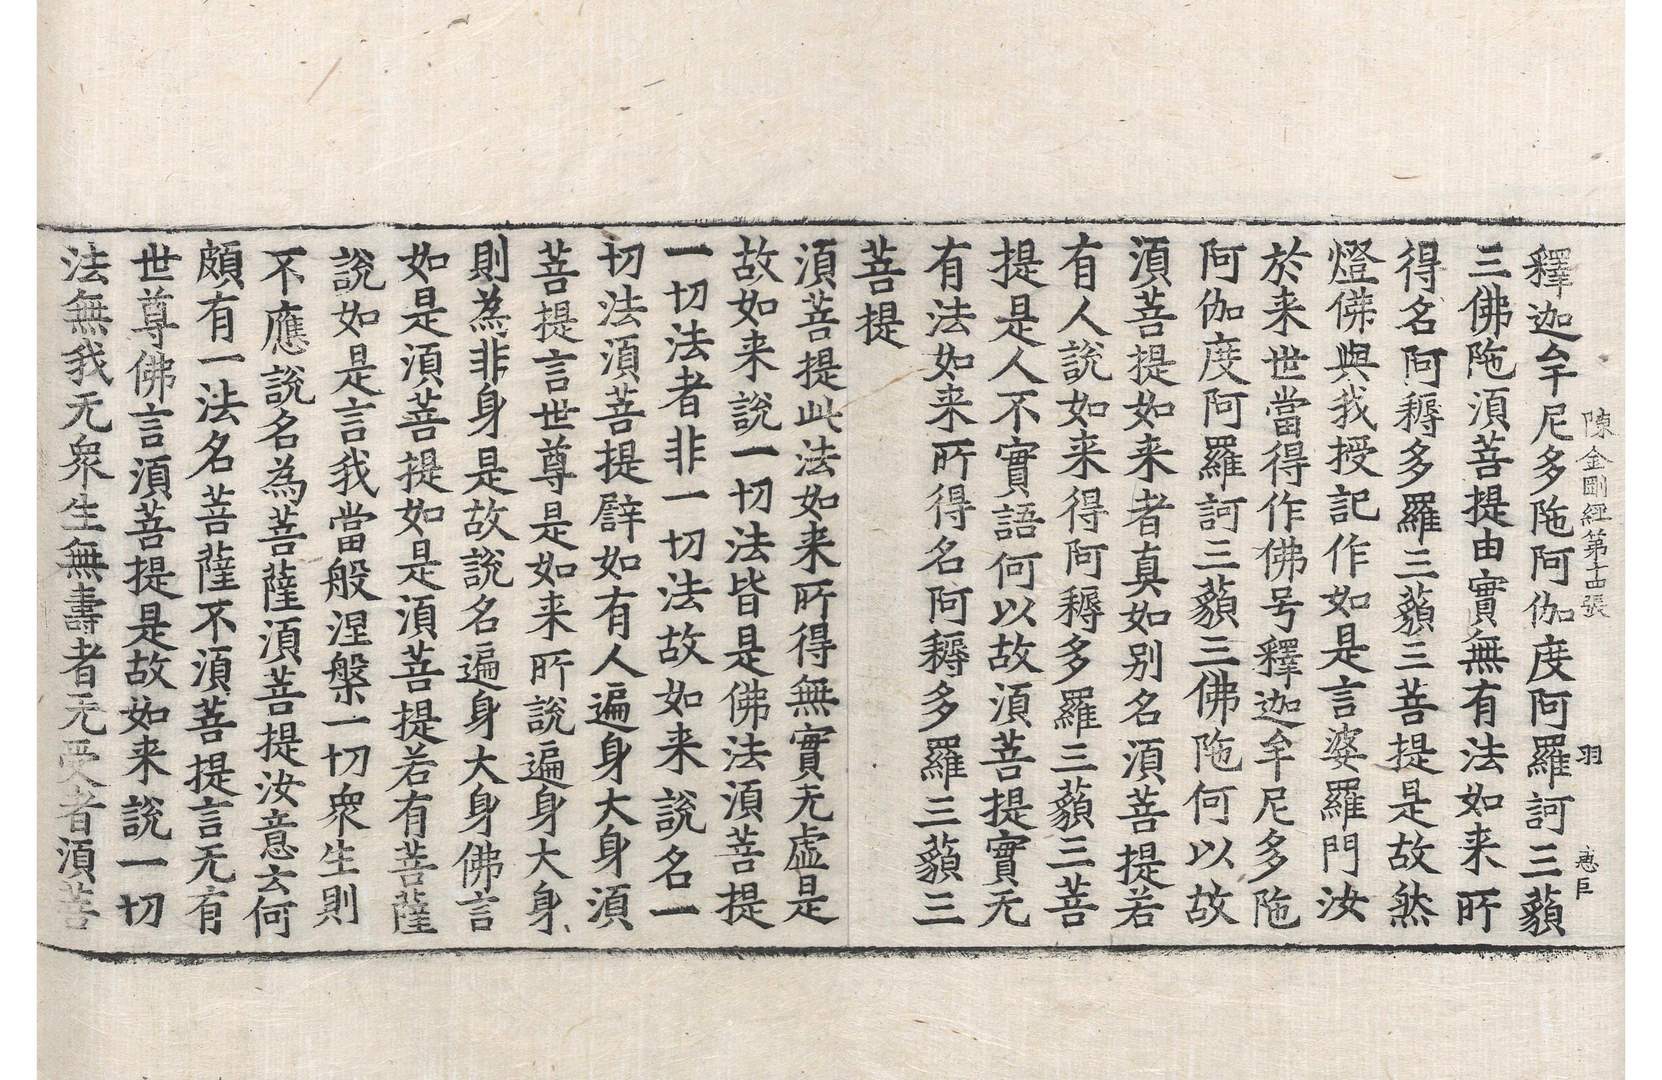 陳金剛經第十四張 羽 惠臣
釋迦牟尼多陁阿伽度阿羅訶三藐
三佛陁湏菩提由實無有法如来所
得名阿耨多羅三藐三菩提是故然
燈佛與我授記作如是言婆羅門汝
於来世當得作佛号釋迦牟尼多陁
阿伽度阿羅訶三藐三佛陁何以故
湏菩提如来者真如别名湏菩提若
有人說如来得阿耨多羅三藐三菩
提是人不實語何以故湏菩提實无
有法如来所得名阿耨多羅三藐三
菩提
湏菩提此法如来所得無實无虛是
故如来說一切法皆是佛法湏菩提
一切法者非一切法故如来說名一
切法湏菩提譬如有人遍身大身湏
菩提言世尊是如来所說遍身大身
則為非身是故說名遍身大身佛言
如是湏菩提如是湏菩提若有菩薩
說如是言我當般涅槃一切衆生則
不應說名為菩薩湏菩提汝意云何
頗有一法名菩薩不湏菩提言无有
世尊佛言湏菩提是故如来說一切
法無我无衆生無壽者无受者湏菩